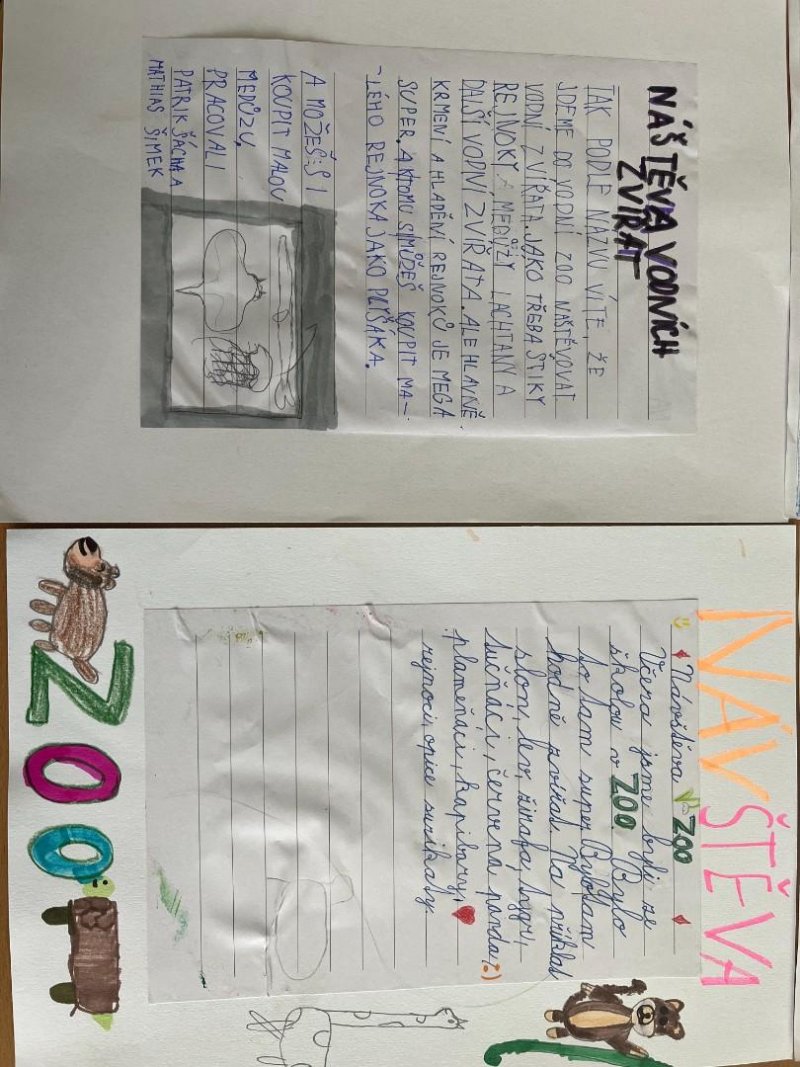 NÁŠTĚVA VODNÍCH
ZVÍŘAT
TAK PODLE NÁZVU VÍTE, ŽE
JDEME DO VODNÍ ZOO NAŠTĚVOVAT
VODNÍ ZVÍŘATA. JAKO TŘEBA ŠTIKY
REJNOKY A MEDÚZY LACHTANY A
DALŠÍ VODNÍ ZVÍŘATA. ALE HLAVNĚ
KRMENÍ A HLAPĚNÍ REJNOKŮ JE MEGA
SUPER. A KTOMU SI MŮŽEŠ KOUPIT MA-
-LÉHO REJNOKA JAKO PLYŠÁKA.
A MOŽEŠ SI
KOUPIT MALOU
MEDŮZU,
PRACOVALI
PATRIK ŠÁCHA A
MATHIAS ŠIMEK
NÁVŠTĚVA
Návštěva V ZOO
Včera jsme byli ze
školou v ZOO. Bylo
to tam super. Bylo tam
hodně zvířat. Na příklad
slon, lev, žirafa, tygři,
tučňáci, červena panda, :)
plameňáci, kapibary,
rejnoci, opice surikaty
ZOO